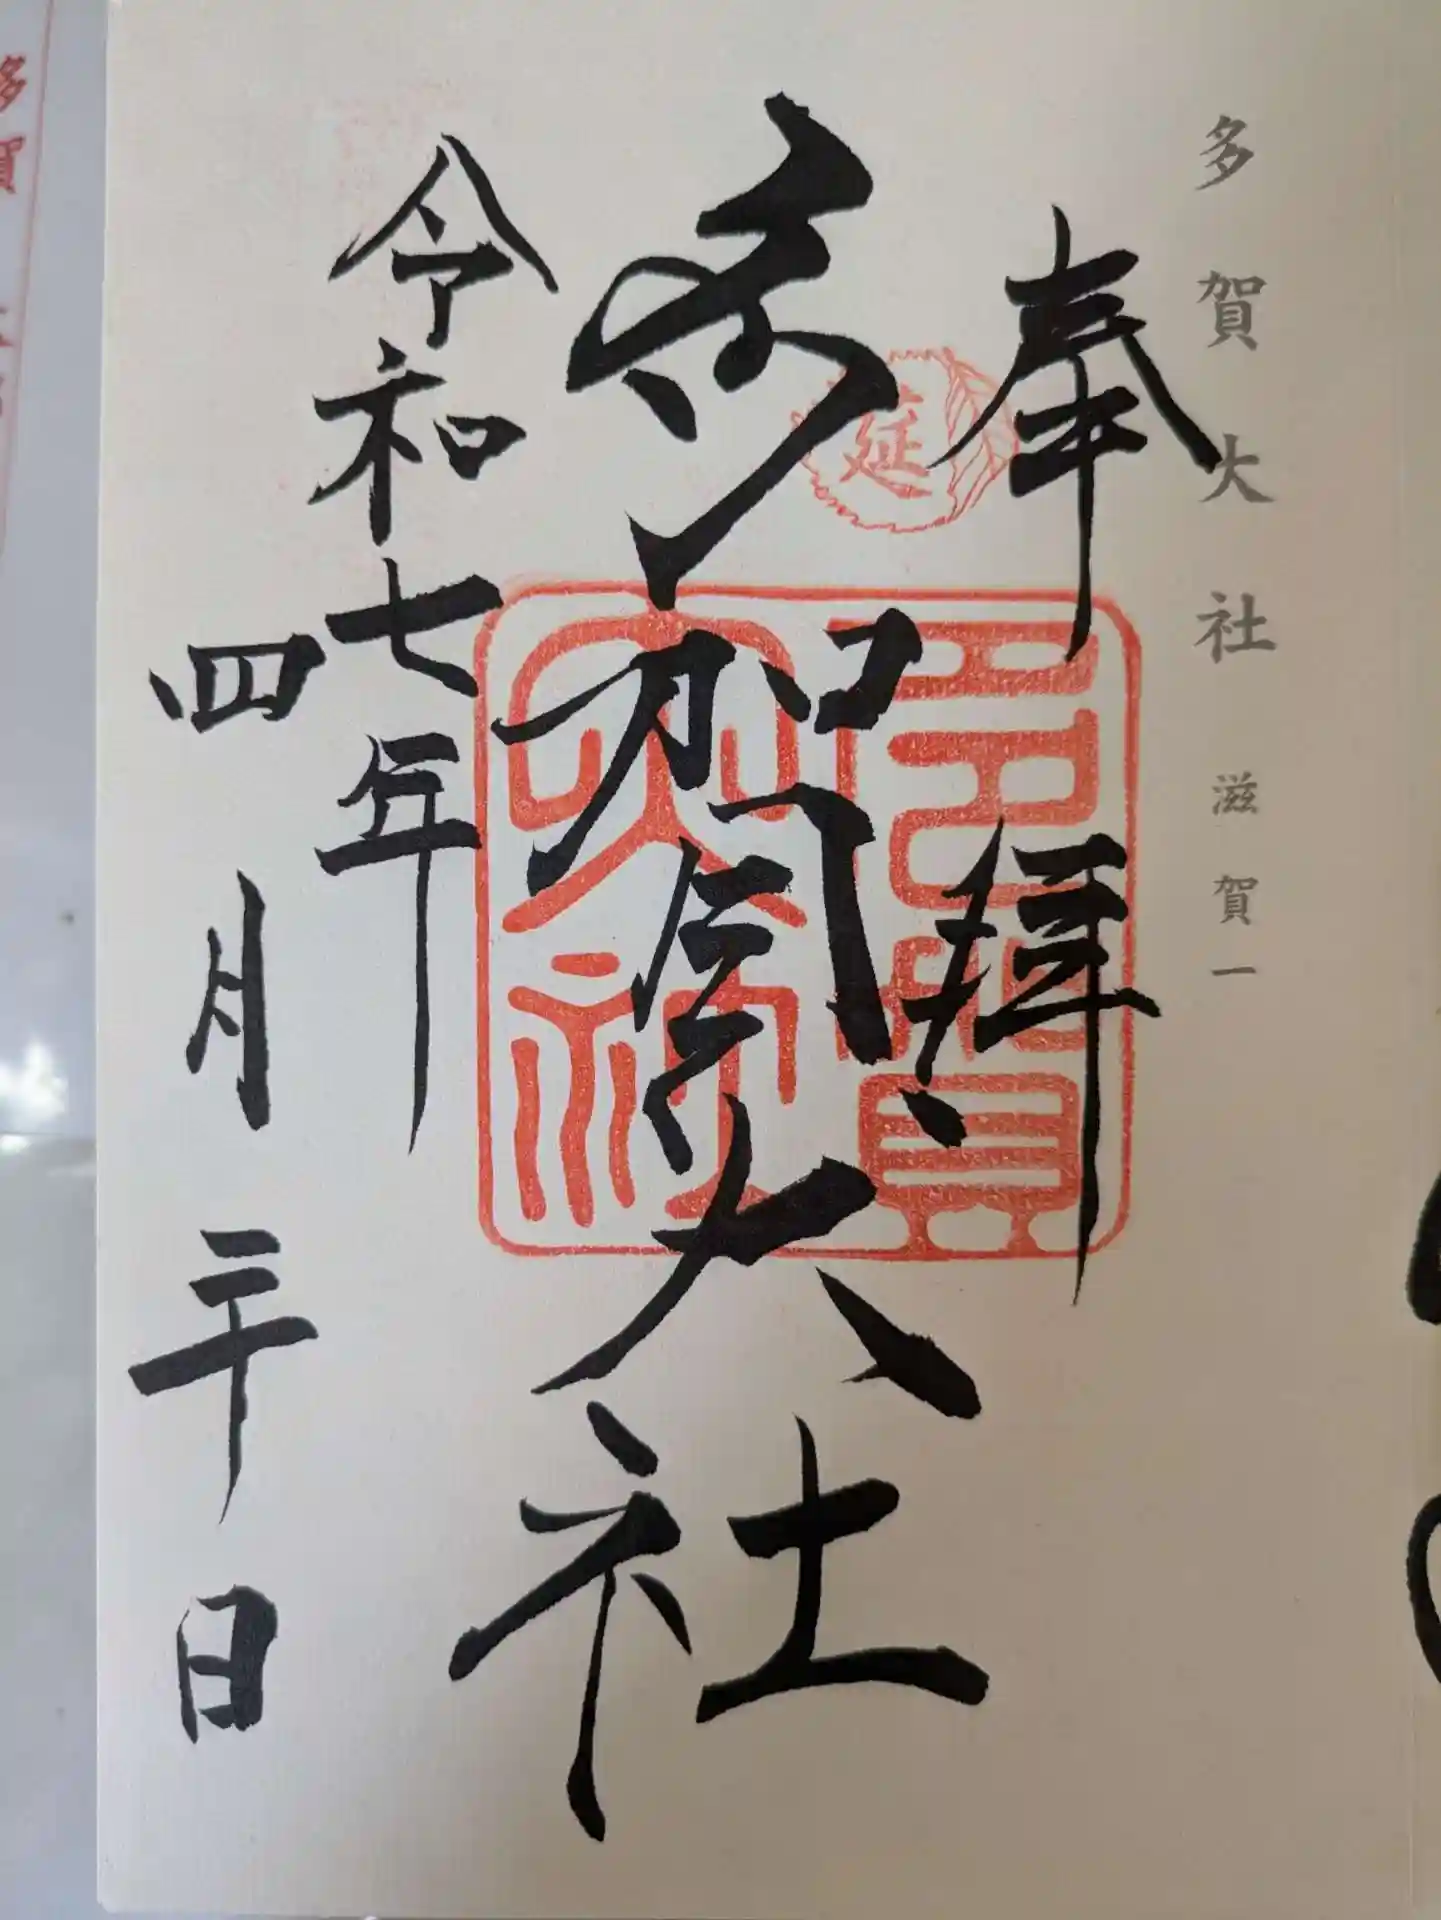 多賀大社 滋賀一
奉拝
延
多賀大社
多賀大社
令和七年
四月二十日
多賀